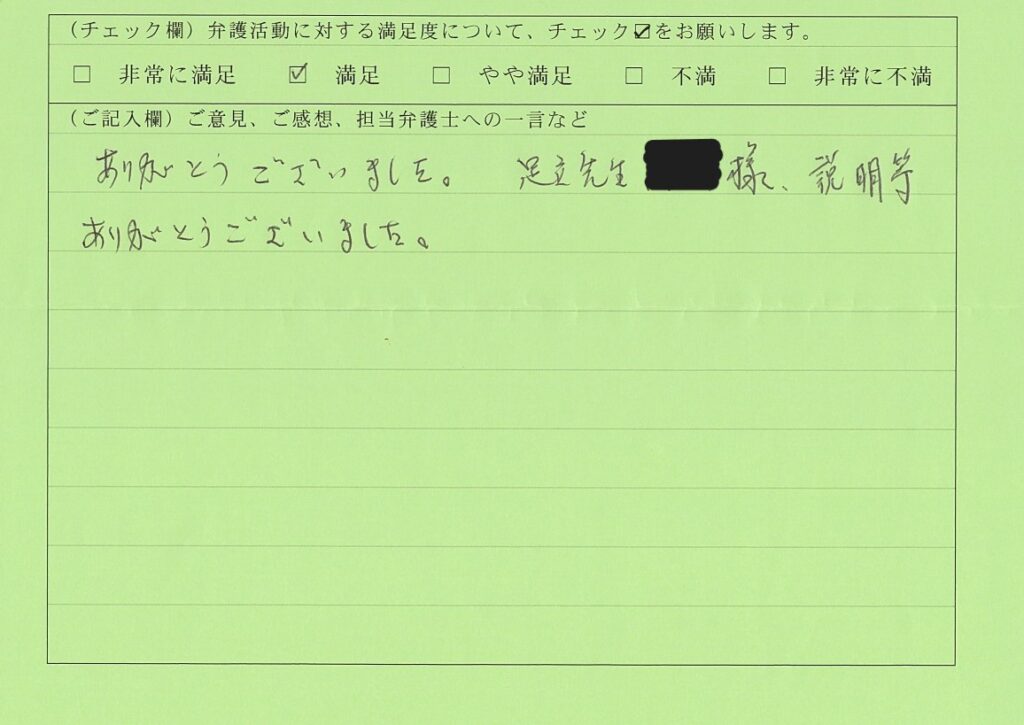 (チェック欄)弁護活動に対する満足度について、チェック☑をお願いします。
□ 非常に満足 ☑ 満足 □ やや満足 □ 不満 □ 非常に不満
(ご記入欄)ご意見、ご感想、担当弁護士への一言など
ありがとうございました。 足立先生 様、説明等
ありがとうございました。